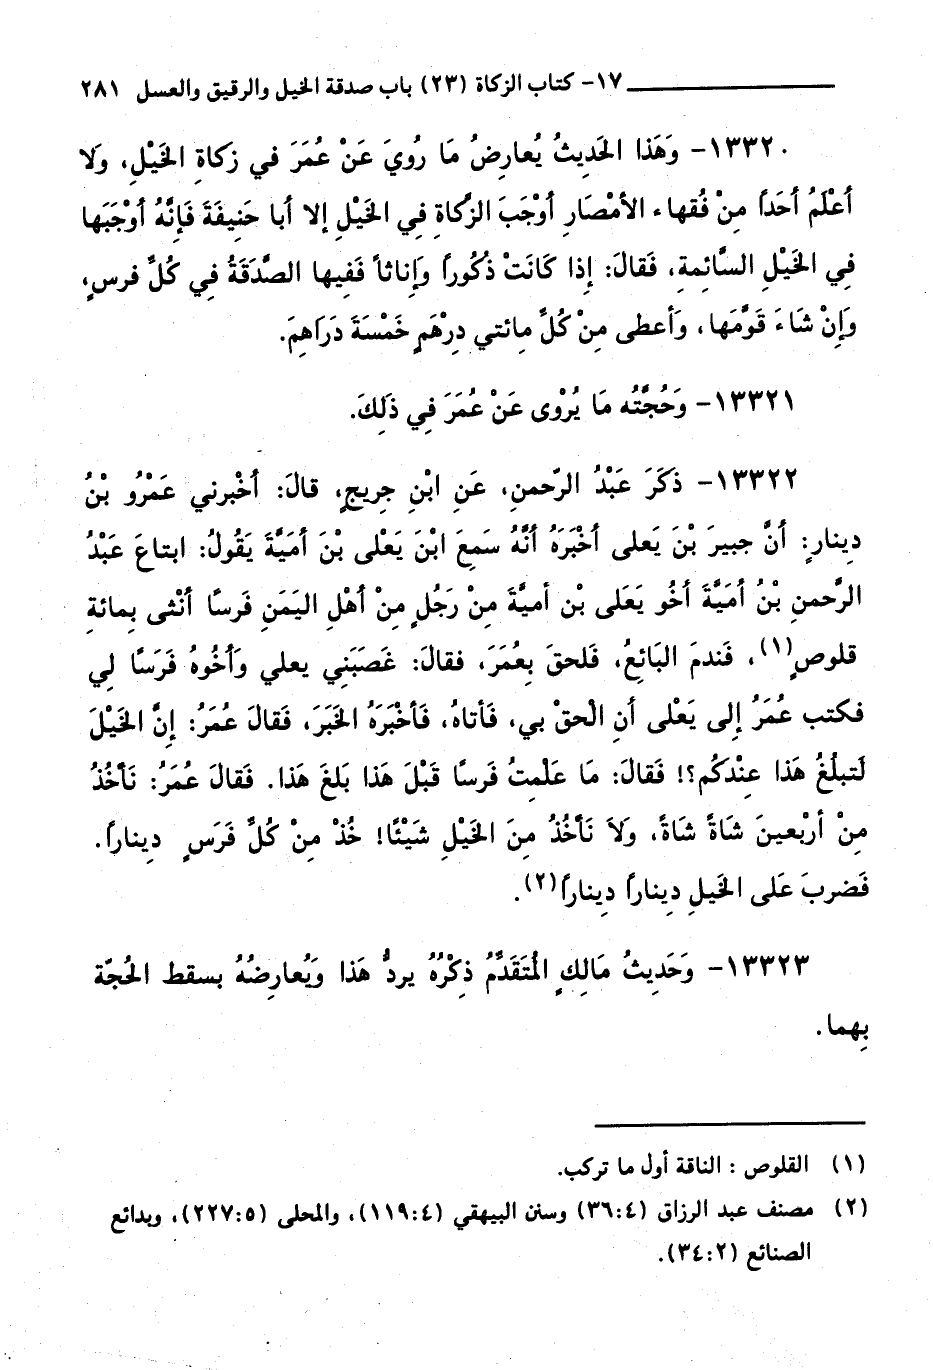 ١٧- كتاب الزكاة (٢٣) باب صدقة الخيل والرقيق والعسل ٢٨١
١٣٣٢٠- وَهَذا الحَديثُ يُعارِضُ مَا رُويَ عَنْ عُمَرَ في زكاةِ الخَيْلِ، ولَا
أعْلَمُ أحَداً مِنْ فُقهاء الأمْصَارِ أوْجَبَ الزَّكاةَ فِي الخَيْلِ إلا أبا حَنِيفَةَ فَإنَّهُ أوْجَبَها
فِي الخَيْلِ السَّائِمةِ، فَقالَ: إذا كَانَتْ ذُكُوراً وَإناثاً فَفِيها الصَّدَقَةُ فِي كُلِّ فرسٍ،
وَإنْ شَاءَ قَوَّمَها، وَأعطى مِنْ كُلِّ مِائتي دِرْهَمٍ خَمْسَةَ دَرَاهِمَ.
١٣٣٢١- وَحُجَّتُه مَا يُرْوى عَنْ عُمَرَ فِي ذَلِكَ.
١٣٣٢٢- ذَكَرَ عَبْدُ الرّحمنِ، عَنِ ابْنِ جِريجٍ، قالَ: أخْبرني عَمْرُو بْنُ
دِينارٍ: أنَّ جبيرَ بْنَ يَعلى أخْبَرَهُ أنَّهُ سَمِعَ ابْنَ يَعْلى بْنَ أمَيَّةَ يَقُولُ: ابتاعَ عَبْدُ
الرَّحمنِ بْنُ أُمَيَّةَ أخُو يَعَلى بْن أميَّةَ مِنْ رَجُلٍ مِنْ أهْلِ اليَمَنِ فَرسًا أنْثى بِمائةِ
قلوصٍ(١)، فَندمَ البَائِعُ، فَلحقَ بِعُمَرَ، فقالَ: غَصَبَنِي يعلي وَأخُوهُ فَرَسًا لِي
فكتب عُمَرُ إلى يَعْلى أنِ الْحقْ بي، فَأتاهُ، فَأخْبَرَهُ الخَبَرَ، فَقالَ عُمَرُ: إنَّ الخَيْلَ
لَتبلُغُ هَذا عِنْدَكُم؟! فَقالَ: مَا عَلمتُ فَرسًا قَبْلَ هَذا بَلغَ هَذا. فَقالَ عُمَرُ: نَأخُذُ
مِنْ أرْبعينَ شَاةً شَاةً، وَلاَ نَأخُذُ مِنَ الخَيْلِ شَيْئًا! خُذْ مِنْ كُلِّ فَرَسٍ دِينارًا.
فَضربَ عَلى الخَيلِ دِينارًا دِينارًا(٢).
١٣٣٢٣- وَحَدِيثُ مَالِكٍ المُتَقَدِّمُ ذِكْرُهُ يردُّ هَذا وَيُعارِضُهُ بسقط الحُجّة
بِهِما.
(١) القلوص : الناقة أول ما تركب.
(٢) مصنف عبد الرزاق (٣٦:٤) وسنن البيهقي (١١٩:٤)، والمحلى (٢٢٧:٥)، وبدائع
الصنائع (٣٤:٢).